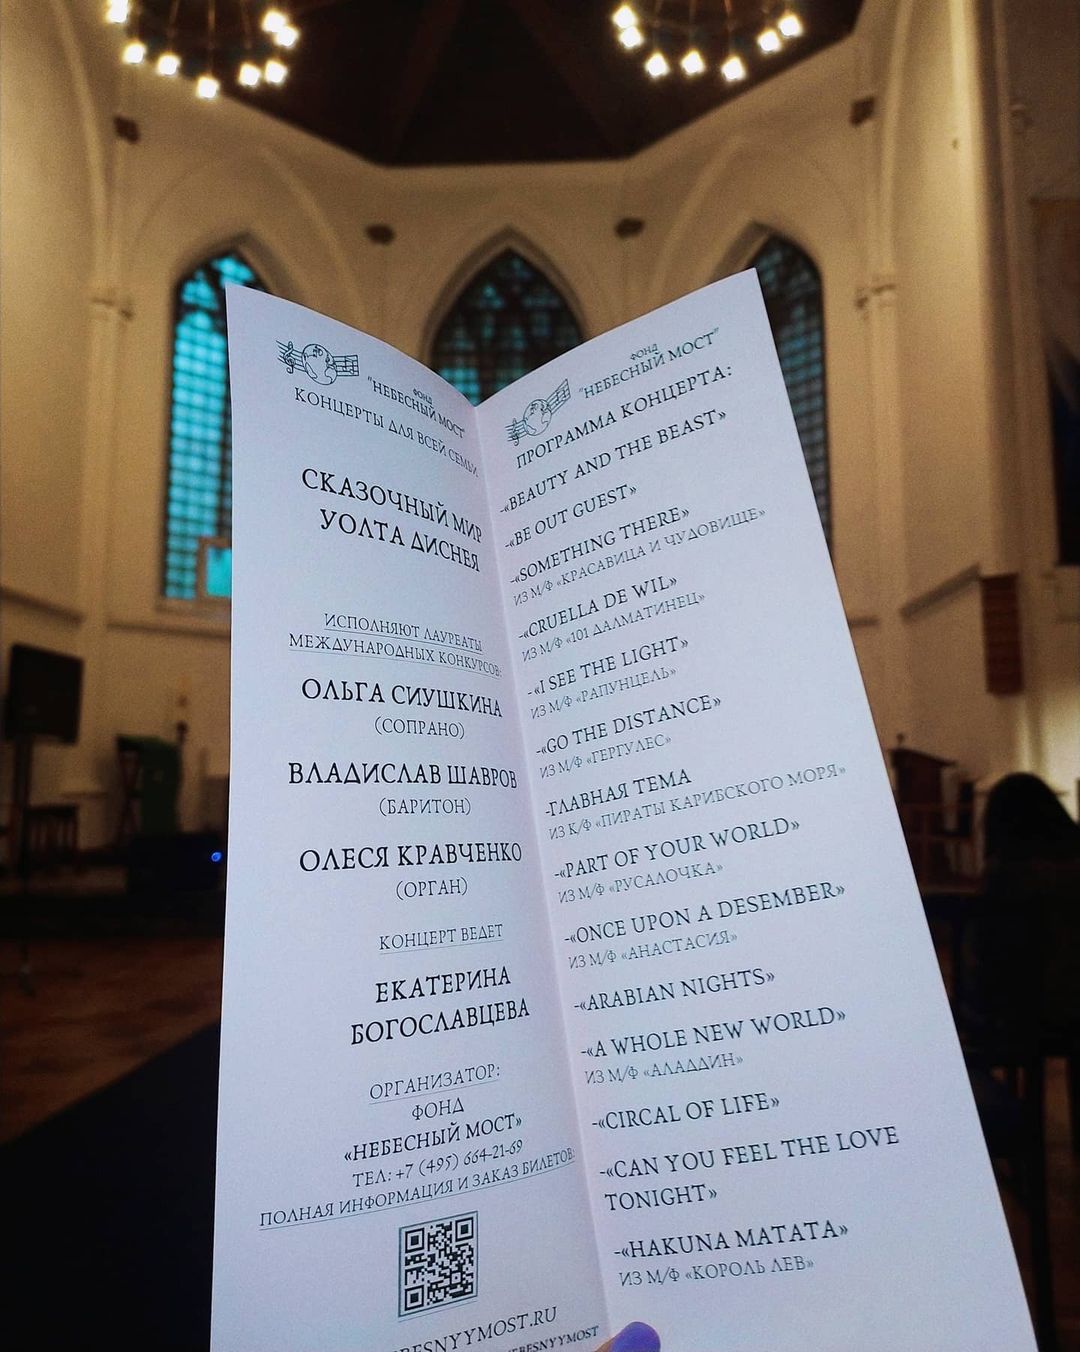 ФОНД
"НЕБЕСНЫЙ МОСТ"
КОНЦЕРТЫ ДЛЯ ВСЕЙ СЕМЬИ
СКАЗОЧНЫЙ МИР
УОЛТА ДИСНЕЯ
ИСПОЛНЯЮТ ЛАУРЕАТЫ
МЕЖДУНАРОДНЫХ КОНКУРСОВ:
ОЛЬГА СИУШКИНА
(СОПРАНО)
ВЛАДИСЛАВ ШАВРОВ
(БАРИТОН)
ОЛЕСЯ КРАВЧЕНКО
(ОРГАН)
КОНЦЕРТ ВЕДЕТ
ЕКАТЕРИНА
БОГОСЛАВЦЕВА
ОРГАНИЗАТОР:
ФОНД
«НЕБЕСНЫЙ МОСТ»
ТЕЛ: +7 (495) 664-21-69
ПОЛНАЯ ИНФОРМАЦИЯ И ЗАКАЗ БИЛЕТОВ:
ФОНД
"НЕБЕСНЫЙ МОСТ"
ПРОГРАММА КОНЦЕРТА:
-«BEAUTY AND THE BEAST»
-«BE OUT GUEST»
-«SOMETHING THERE»
ИЗ М/Ф «КРАСАВИЦА И ЧУДОВИЩЕ»
-«CRUELLA DE WIL»
ИЗ М/Ф «101 ДАЛМАТИНЕЦ»
-«I SEE THE LIGHT»
ИЗ М/Ф «РАПУНЦЕЛЬ»
-«GO THE DISTANCE»
ИЗ М/Ф «ГЕРГУЛЕС»
-ГЛАВНАЯ ТЕМА
ИЗ К/Ф «ПИРАТЫ КАРИБСКОГО МОРЯ»
-«PART OF YOUR WORLD»
ИЗ М/Ф «РУСАЛОЧКА»
-«ONCE UPON A DESEMBER»
ИЗ М/Ф «АНАСТАСИЯ»
-«ARABIAN NIGHTS»
-«A WHOLE NEW WORLD»
ИЗ М/Ф «АЛАДДИН»
-«CIRCAL OF LIFE»
-«CAN YOU FEEL THE LOVE
TONIGHT»
-«HAKUNA MATATA»
ИЗ М/Ф «КОРОЛЬ ЛЕВ»